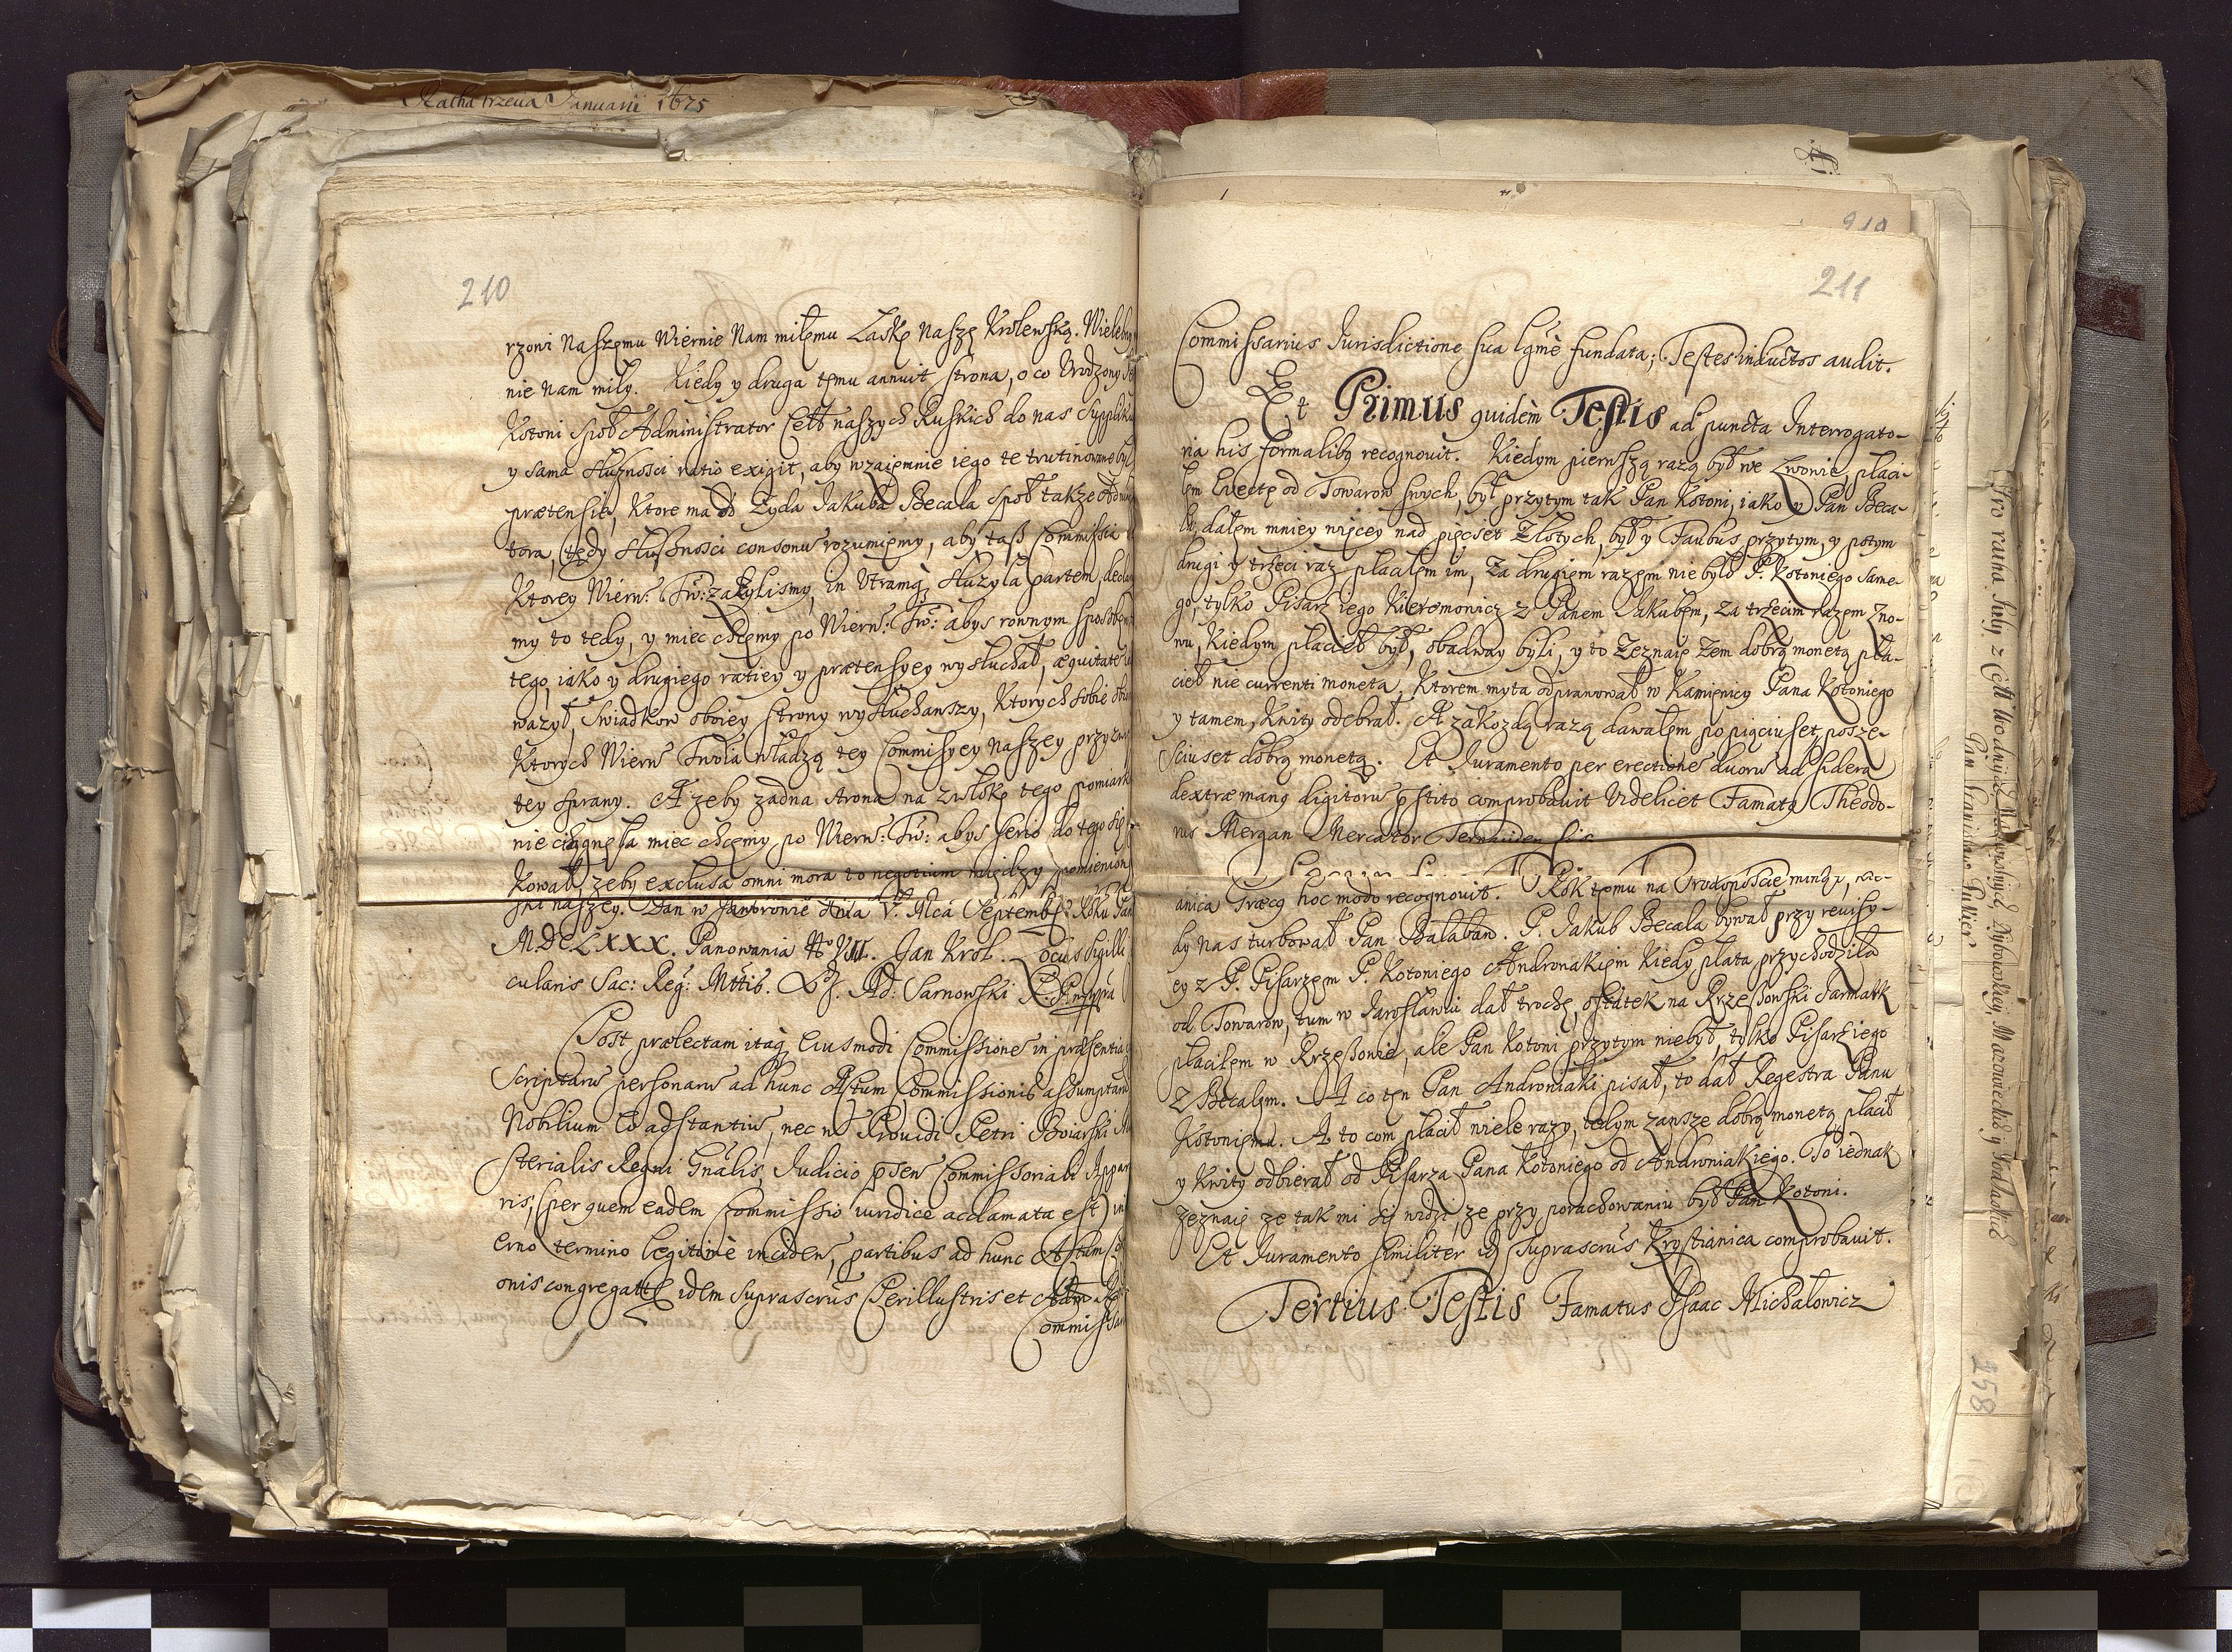 Ratha trzecia Januarii 1675
210
rzoni Naszemu Wiernie Nam miłemu Łaskę Naszę Krolewską. Wieleb
nie Nam miły. Kiedy y druga temu annuit strona, o co Urodzony
Kotoni społ Administrator Cełł naszych Ruskich do nas Suppliku
y sama słusznosci ratio exigit, aby wzaiemnie iego te trutinowane był
prætensie, Ktore ma od Zyda Jakuba Becala społ także Admin
tora, tędy słusznosci consonū rozumiemy, aby taż Commissia
Ktorey Wiern: Tw: zażylismy, in Utramq; służyła partem, decla
my to tedy, y miec chcemy po Wiern: Tw: abys rownym sposobem
tego, iako y drugiego ratiey y prætensyey wysłuchał, æquitate
ważył, Swiadkow oboiey strony wysłuchawszy, Ktorych sobie
Ktorych Wiern Twoia władzą tey Commisyey Naszey przyzw
tey sprawy. A żeby żadna strona na zwłokę tego pomiark
nie ciągnęła miec chcemy po Wiern: Tw: abys serio do tego się
Kował, żeby exclusa omni mora to negotium między pomienion
ski naszey. Dan w Jaworowie dnia V. Mca Septembr: Roku Pan
M.DC.LXXX. Panowania No VII. Jan Krol. Locus Sigilli
cularis Sac: Reg: Mttis. Ad: Sarnowski
Post prælectam itaq; Eiusmodi Commissionē in præsentia
Scriptarū personarū ad hunc Actum Commissionis assumptarū
Nobilium Eō adstantiū, nec nō Providi Petri Boiarski
sterialis Regni Gnalis, Judicio psen Commissoriali Appar
ris, (per quem eadem Commissio iuridice acclamata est) in
erno termino legitimè inciden, partibus ad hunc Actum
onis congregatis idem suprascrūs Perillustris et Adm
Commissari
211
Commissarius Jurisdictione sua lgmè fundata; Testes inductos audit.
Et Primus quidèm Testis ad puncta Interrogato-
ria his formalibq recognovit. Kiedym pierwszą razą był we Lwowie, płaci-
łem Evectę od Towarow swych, był przytym tak Pan Kotoni, iako y Pan Beca-
la, dałem mniey więcey nad pięćset Złotych, był y Faubus przytym, y potym
drugi y trzeci raz płaciłem im, Za drugiem razem nie było P. Kotoniego same-
go, tylko Pisarz iego Kieremowicz z Panem Jakubem, za trzecim razem zno-
wu, Kiedym płacieł był, obadway byli, y to Zeznaię Zem dobrą monetą pła-
cieł nie currenti moneta, Ktorem myta odprawował w Kamienicy Pana Kotoniego
y tamem, Kwity odebrał. A za kożdą razą dawałem po pięciuset, posze-
sciuset dobrą monetą. Et Juramento per erectionē duorū ad sidera
dextræ manq digitorū pstito comprobavit Videlicet Famatq Theodo-
rus Mergan Mercator
anica Græcq hoc modo recognovit. Rok temu na Srodopoście minęł,
by nas turbował Pan Bałaban. P. Jakub Becala bywał przy revisy-
ey z P. Pisarzem P. Kotoniego Andronakiem Kiedy płata przychodziła
od Towarow, tum w Jarosławiu dał trochę, ostatek na Rzeszowski Jarmark
płaciłem w Rzeszowie, ale Pan Kotoni przytym niebył, tylko Pisarz iego
z Becalem. A co ten Pan Androniaki pisał, to dał Regestra Panu
Kotoniemu. A to com płacił wiele razy, tedym zawsze dobrą monetą płacił
y Kwity odbierał od Pisarza Pana Kotoniego od Androniakiego. To iednak
zeznaię ze tak mi się widzi, ze przy porachowaniu był Pan Kotoni.
Et Juramento similiter id suprascrūs Krystianica comprobavit.
Tertius Testis Famatus Isaac Michałowicz
258